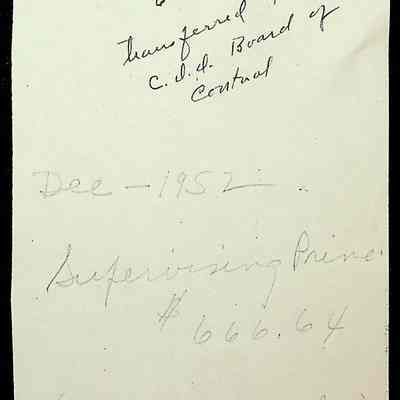 6
Transferred
C.D.D. Board of
Control
Dec - 1952
Supervising Princ.
$
666.64